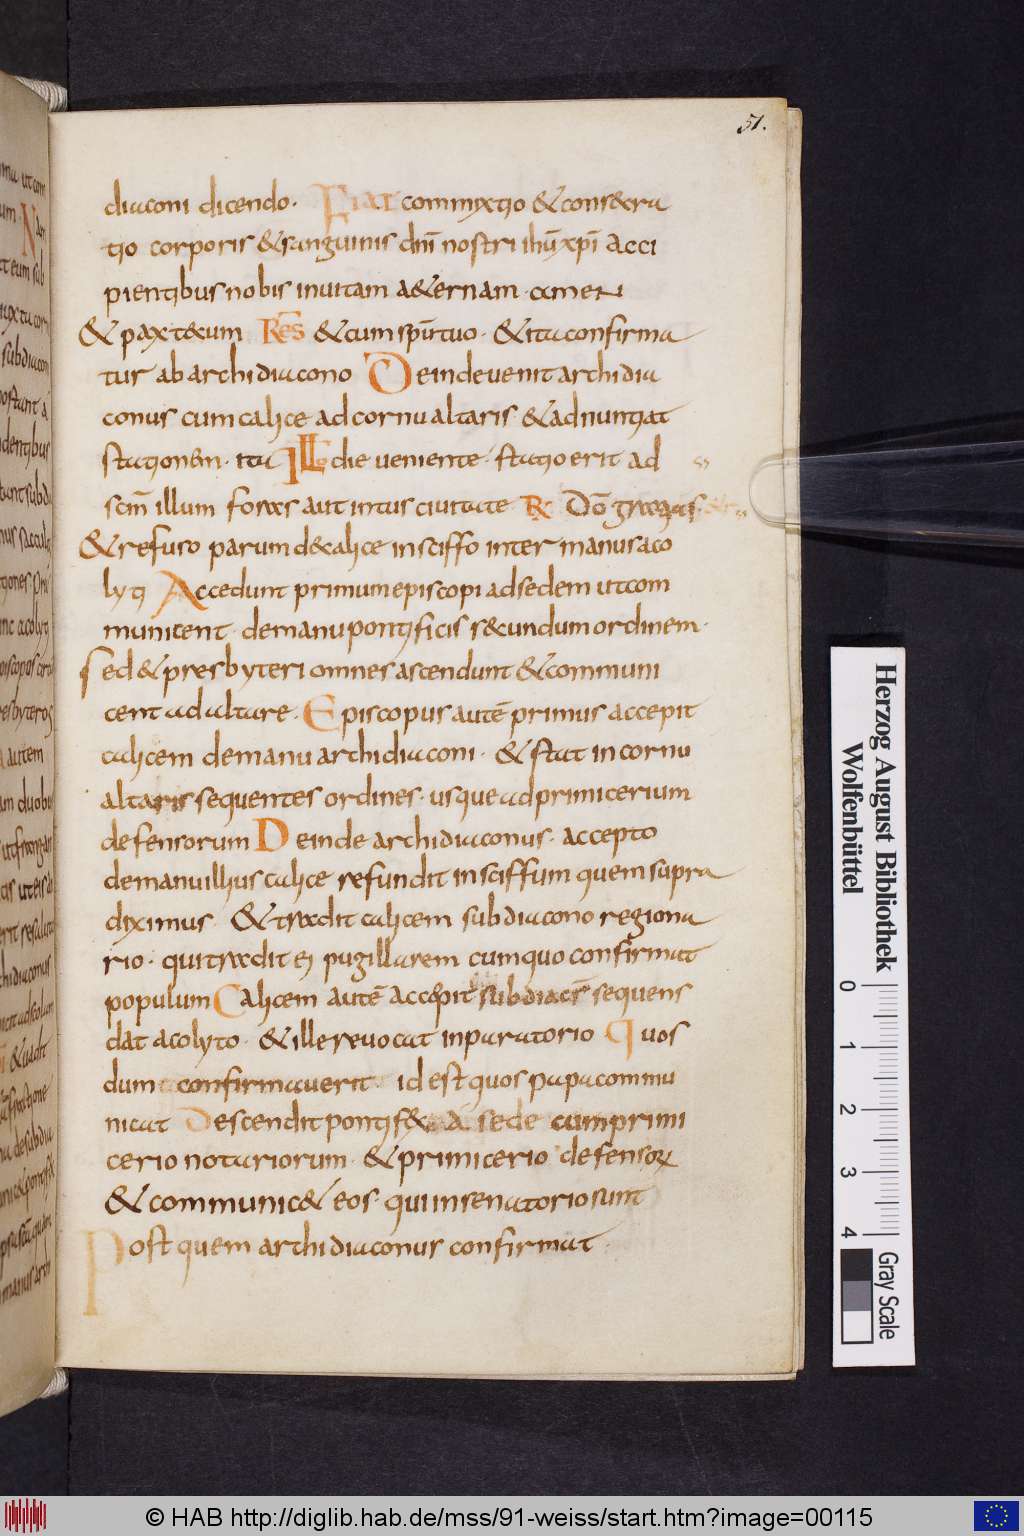 51.
diaconi dicendo. Fiat commixtio & cons&cra
tio corporis & sanguinis dñi nostri ihu xpi acci
pientibus nobis in uitam a&ernam. amen
& pax t&cum Res & cum spiritu tuo. & ita confirma
tur ab archidiacono Deinde uenit archidia
conus cum calice ad cornu altaris & adnuntiat
stationem. ita ILL die ueniente. statio erit ad
scm illum foras aut intus ciuitate R Dō gratias
& refuso parum de calice in sciffo inter manus aco
lyti Accedunt primum episcopi ad sedem ut com
municent. de manu pontificis s&cundum ordinem.
sed & presbyteri omnes ascendunt & communi
cent ad altare. Episcopus autē primus accepit
calicem de manu archidiaconi. & stat in cornu
altaris sequentes ordines. usque ad primicerium
defensorum Deinde archidiaconus. accepto
de manu illius calice refundit in sciffum quem supra
diximus. & tradit calicem subdiacono regiona
rio. qui tradit ei pugillarem cum quo confirmat
populum Calicem autē accepit subdiacs sequens
dat acolyto. & ille reuocat in paratorio Quos
dum confirmauerit id est quos papa commu
nicat Descendit pontif& A sede cum primi
cerio notariorum. & primicerio defensor
& communic& eos qui in senatorio sunt
Post quem archidiaconus confirmat
Herzog August Bibliothek
Wolfenbüttel
0 1 2 3 4
Gray Scale
© HAB http://diglib.hab.de/mss/91-weiss/start.htm?image=00115